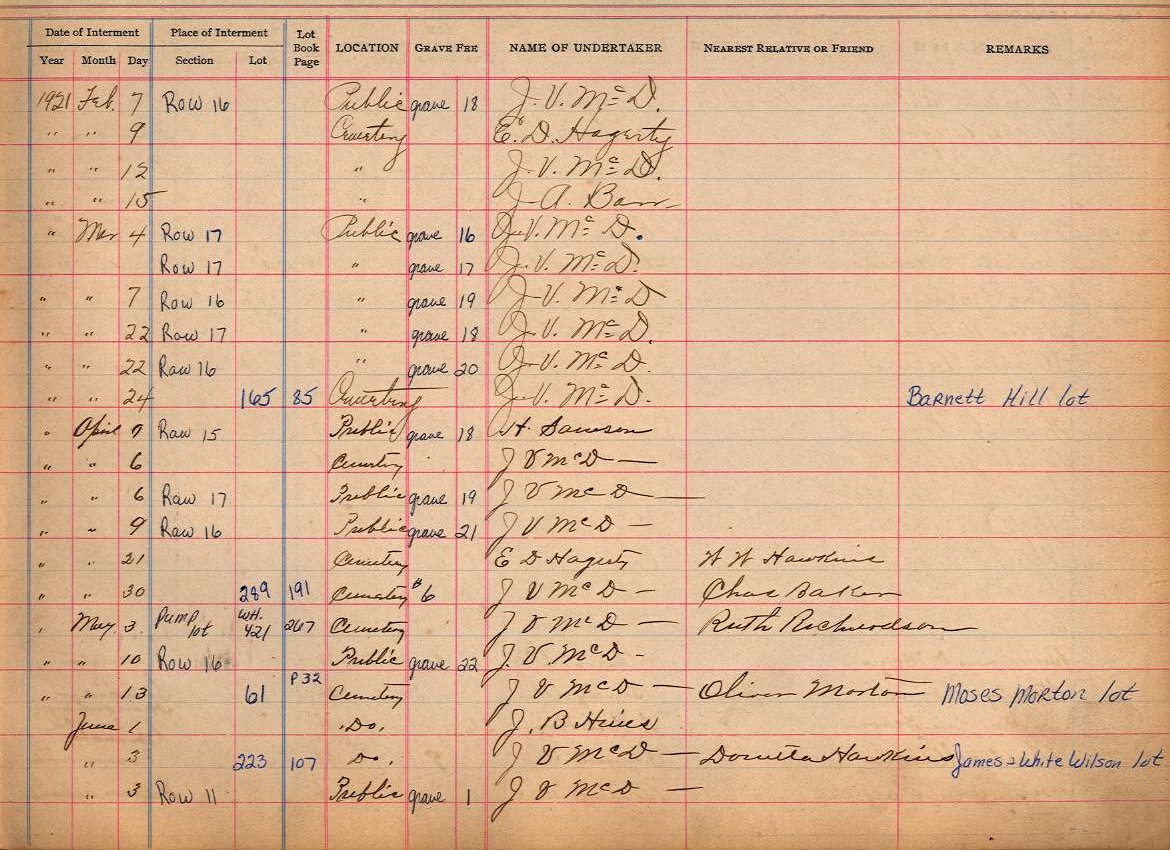 Date of Interment Place of Interment Lot Book Page LOCATION GRAVE FEE NAME OF UNDERTAKER NEAREST RELATIVE OR FRIEND REMARKS
Year Month Day Section Lot
1921 Feb. 7 Row 16 Public grave 18 J. V. McD.
" " 9 Cemetery E. D. Hagerty
" " 12 " J. V. McD.
" " 15 " J. A. Barr
" Mar 4 Row 17 Public grave 16 J. V. McD.
Row 17 " grave 17 J. V. McD.
" " 7 Row 16 " grave 19 J. V. McD
" " 22 Row 17 " grave 18 J. V. McD.
" " 22 Row 16 " grave 20 J. V. McD.
" " 24 165 85 Cemetery J. V. McD. Barnett Hill lot
" April Row 15 Public grave 18 H. Samson
" " 6 Cemetery J V McD —
" " 6 Row 17 Public grave 19 J V McD —
" " 9 Row 16 Public grave 21 J V McD —
" " 21 Cemetery E D Hagerty W W Hawkins
" " 30 289 191 Cemetery #6 J V McD — Chas Baker
" May 3. Pump lot WH. 421 267 Cemetery J V McD — Ruth Richardson
" " 10 Row 16 Public grave 22 J. V McD -
" " 13 61 P32 Cemetery J V McD — Oliver Morton Moses Morton lot
June 1 Do. J. B Hines
" 3 223 107 Do. J V McD — Doretta Hawkins James + White Wilson lot
" 3 Row 11 Public grave 1 J V McD —